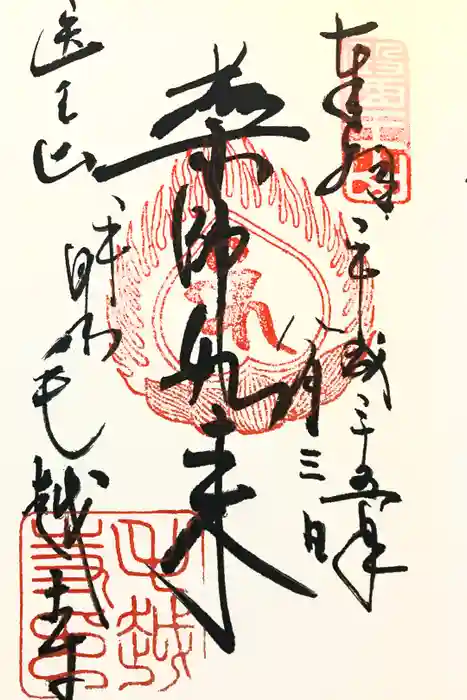 奉拝 平成二十五年
八月三日
薬師如来
医王山
平泉 毛越寺
毛越
寺印